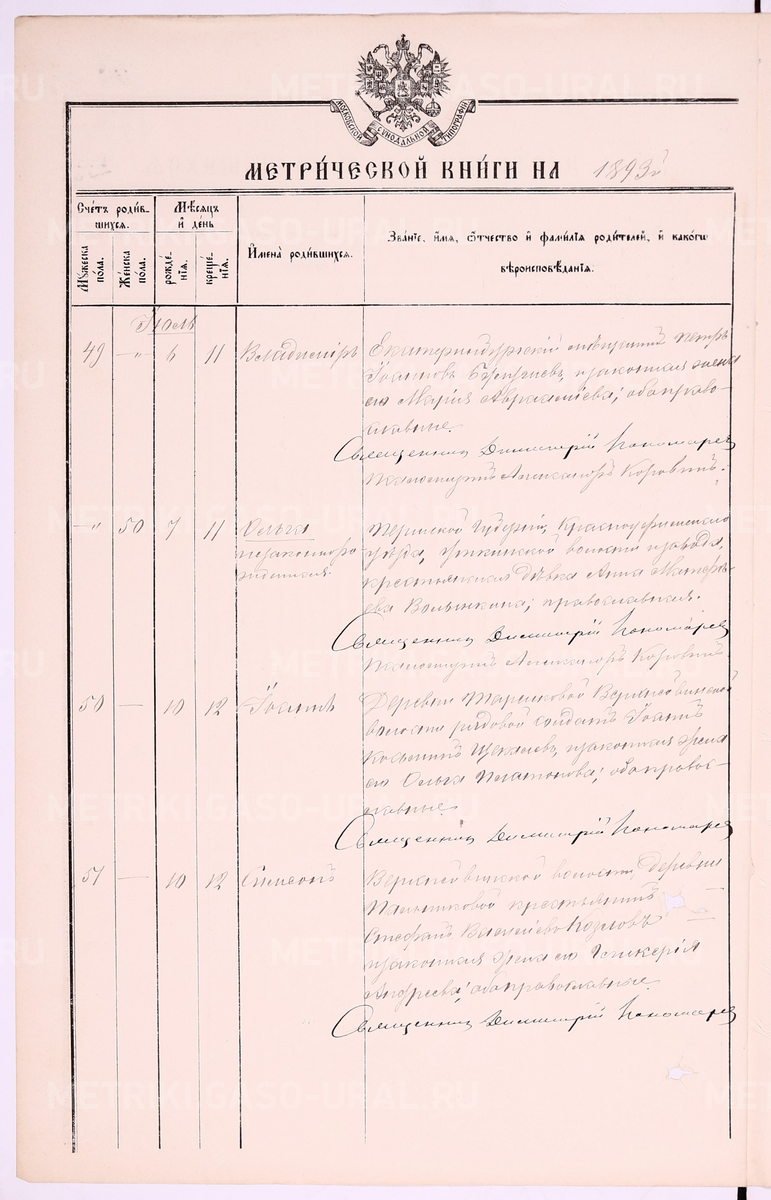 МОСКОВСКОЙ СѴНОДАЛЬНОЙ ТИПОГРАФІИ
МЕТРИЧЕСКОЙ КНИГИ НА 1893й
Счетъ родив-
шихся.
Мѣсяцъ
и день
Мужеска
пола.
Женска
пола.
рожде-
нія.
креще-
нія.
Имена родившихся.
Званіе, имя, отчество и фамилія родителей, и какого
вѣроисповѣданія.
Іюль
49 — „ 6 11 Владиміръ
Екатеринбургскій мѣщанинъ Петръ
Іоанновъ и законная жена
его Марія Аврааміева; оба право-
славные.
Священникъ Димитрій Пономаревъ
Псаломщикъ Александръ Коровинъ.
— „ 50 7 11 Ольга
незаконно-
рожденная.
Пермской Губерніи, Красноуфимскаго
уѣзда, Уткинской волости и завода,
крестьянская дѣвка Анна Матѳѣ-
ева Волынкина; православная.
Священникъ Димитрій Пономаревъ
Псаломщикъ Александръ Коровинъ.
50 — 10 12 Іоаннъ
Деревни
волости рядовой солдатъ Іоаннъ
Косьминъ и законная жена
его Ольга Платонова; оба право-
славные.
Священникъ Димитрій Пономаревъ
51 — 10 12 Симеонъ
волости, деревни
крестьянинъ
Стефанъ Василіевъ Козловъ
и законная жена его Гликерія
Андреева; оба православные.
Священникъ Димитрій Пономаревъ
METRIKI.GASO-URAL.RU